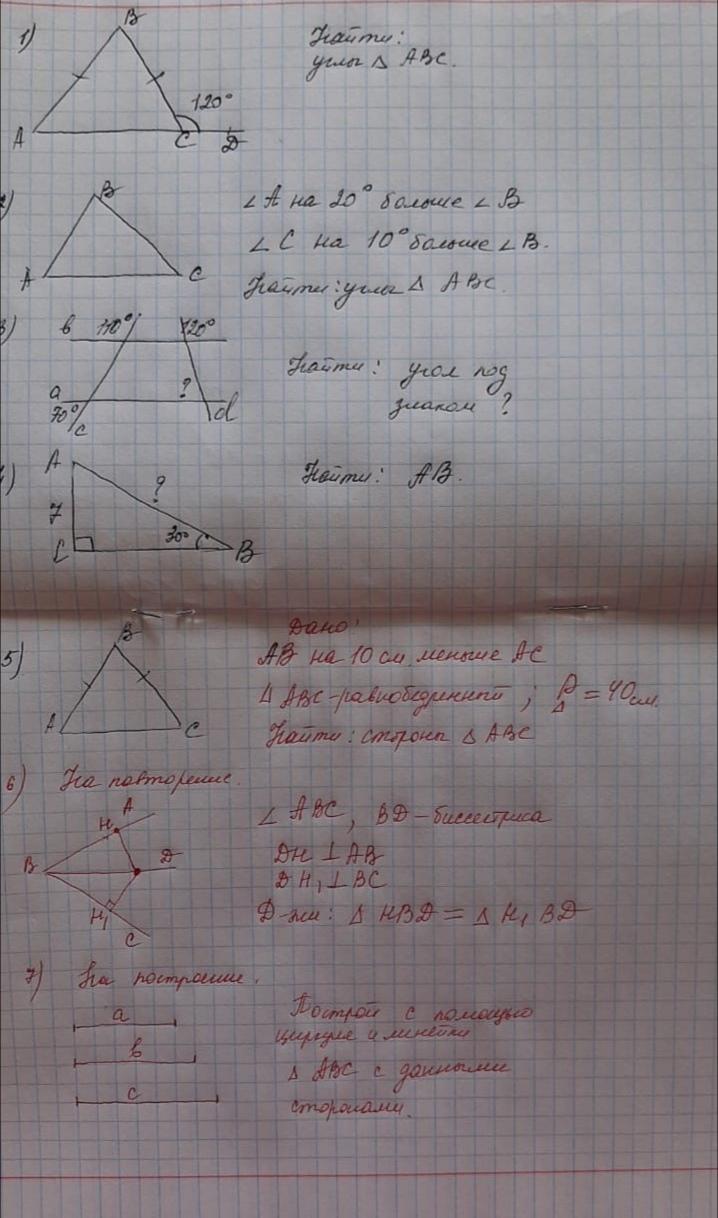 1)
B
Найти:
углы Δ ABC.
120°
A
C
D
2)
B
∠A на 20° больше ∠B
∠C на 10° больше ∠B.
A
C
Найти: углы Δ ABC.
3)
b
110°
120°
Найти: угол под
знаком ?
a
?
70°
c
d
4)
A
Найти: AB.
?
7
30°
C
B
Дано:
5)
B
AB на 10 см меньше AC
Δ ABC - равнобедренный; P Δ = 40 см.
A
C
Найти: стороны Δ ABC
6) На повторение.
A
H
∠ ABC, BD - биссектриса
B
D
DH ⊥ AB
DH₁ ⊥ BC
H₁
Д-жи: Δ HBD = Δ H₁BD
C
7) На построение.
a
Построй с помощью
циркуля и линейки
b
Δ ABC с данными
c
сторонами.